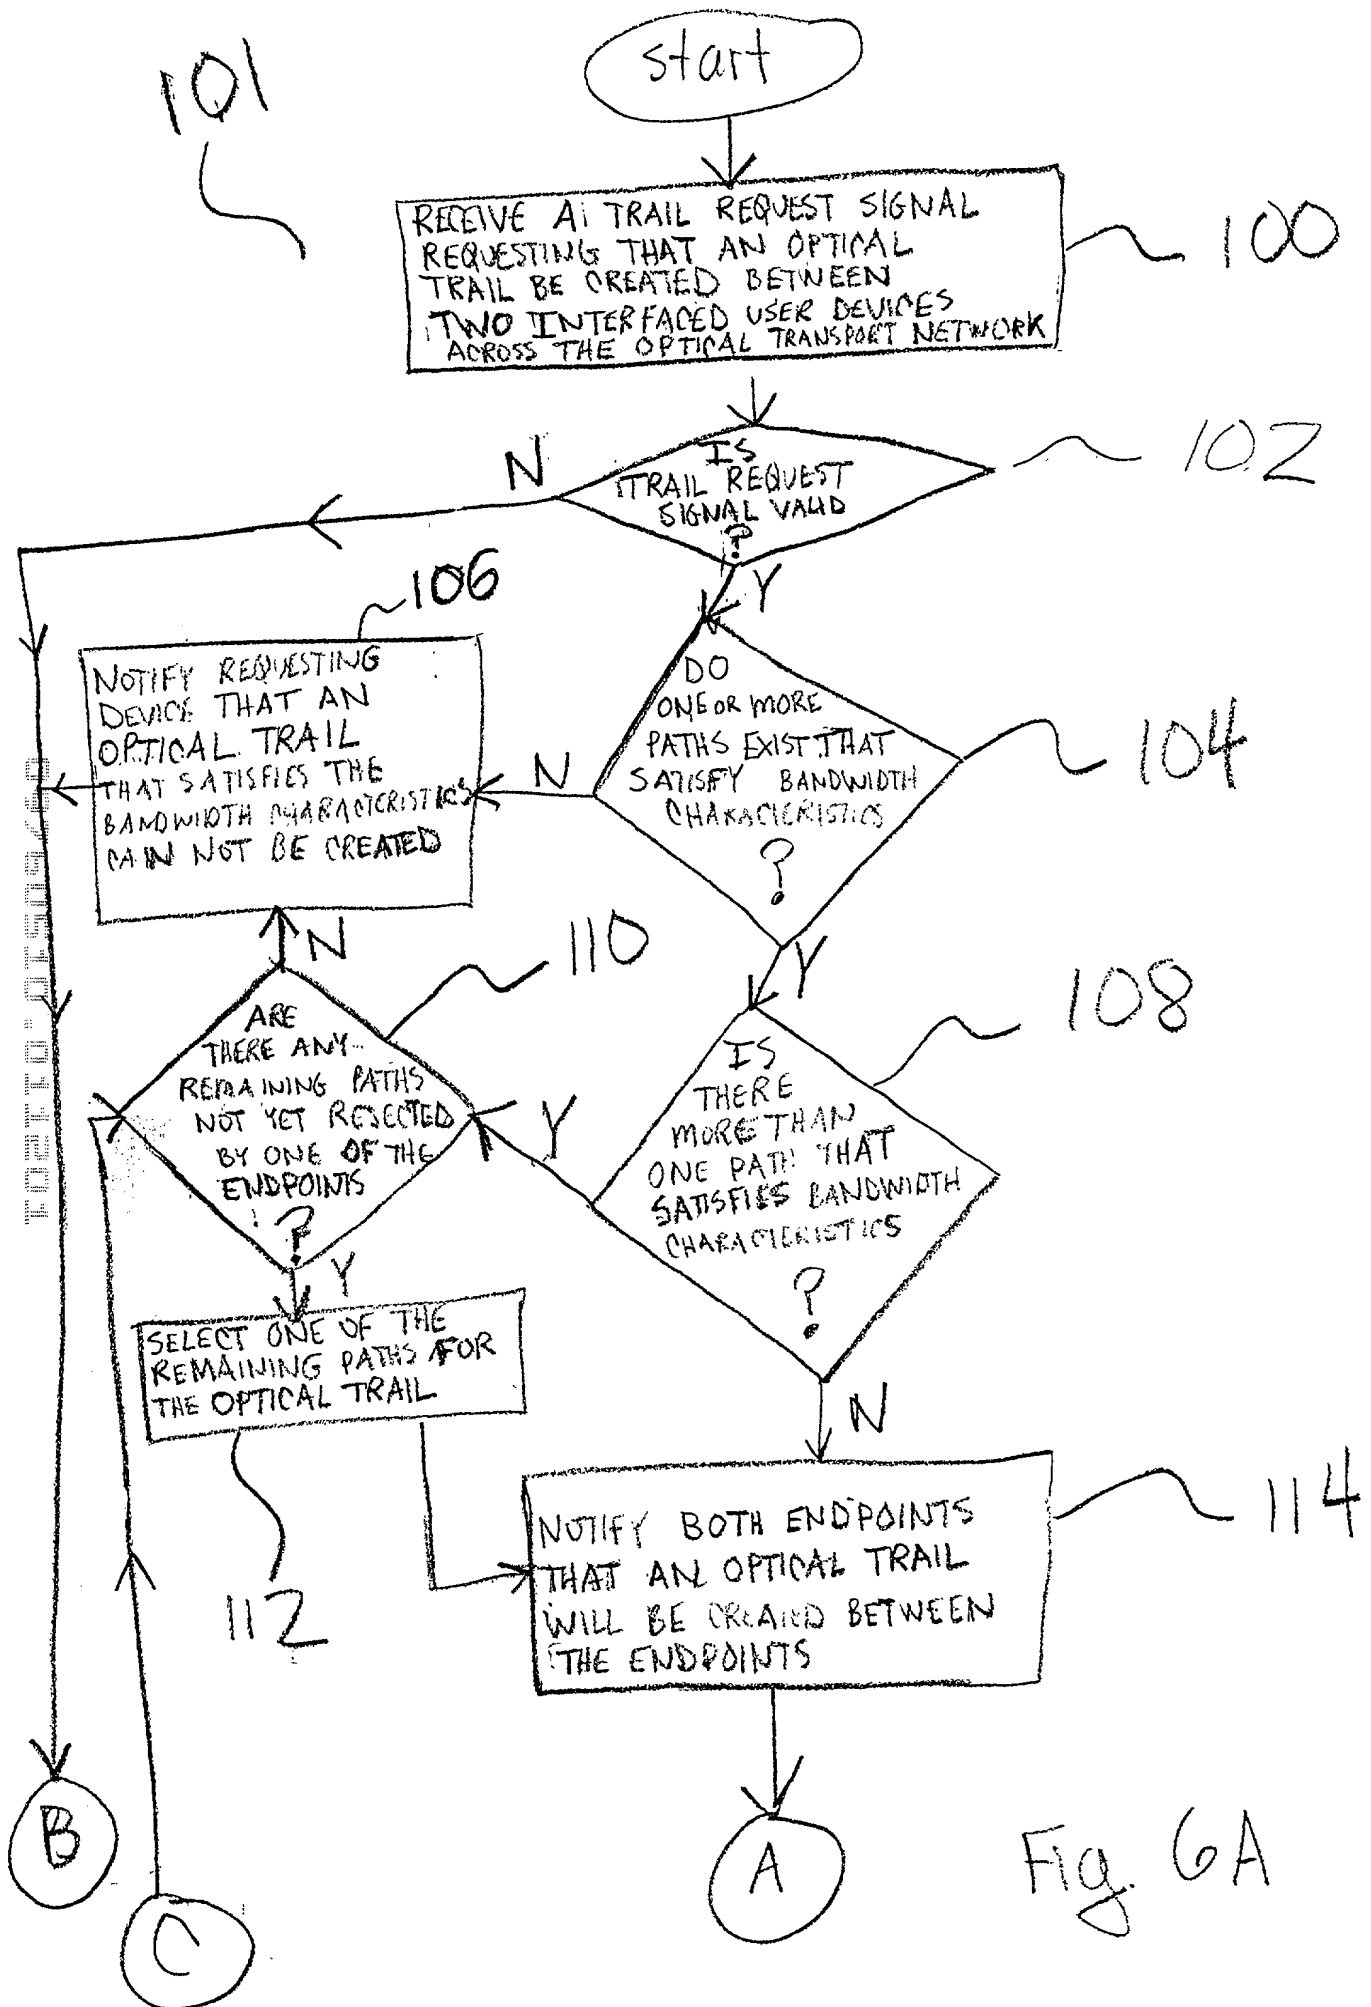 start
101
RECEIVE A TRAIL REQUEST SIGNAL
REQUESTING THAT AN OPTICAL
TRAIL BE CREATED BETWEEN
TWO INTERFACED USER DEVICES
ACROSS THE OPTICAL TRANSPORT NETWORK
100
IS
TRAIL REQUEST
SIGNAL VALID
?
102
N
Y
106
NOTIFY REQUESTING
DEVICE THAT AN
OPTICAL TRAIL
THAT SATISFIES THE
BANDWIDTH CHARACTERISTICS
CAN NOT BE CREATED
N
DO
ONE OR MORE
PATHS EXIST THAT
SATISFY BANDWIDTH
CHARACTERISTICS
?
104
Y
N
110
ARE
THERE ANY
REMAINING PATHS
NOT YET REJECTED
BY ONE OF THE
ENDPOINTS
?
Y
IS
THERE
MORE THAN
ONE PATH THAT
SATISFIES BANDWIDTH
CHARACTERISTICS
?
108
Y
SELECT ONE OF THE
REMAINING PATHS FOR
THE OPTICAL TRAIL
112
N
NOTIFY BOTH ENDPOINTS
THAT AN OPTICAL TRAIL
WILL BE CREATED BETWEEN
THE ENDPOINTS
114
B
C
A
Fig. 6A